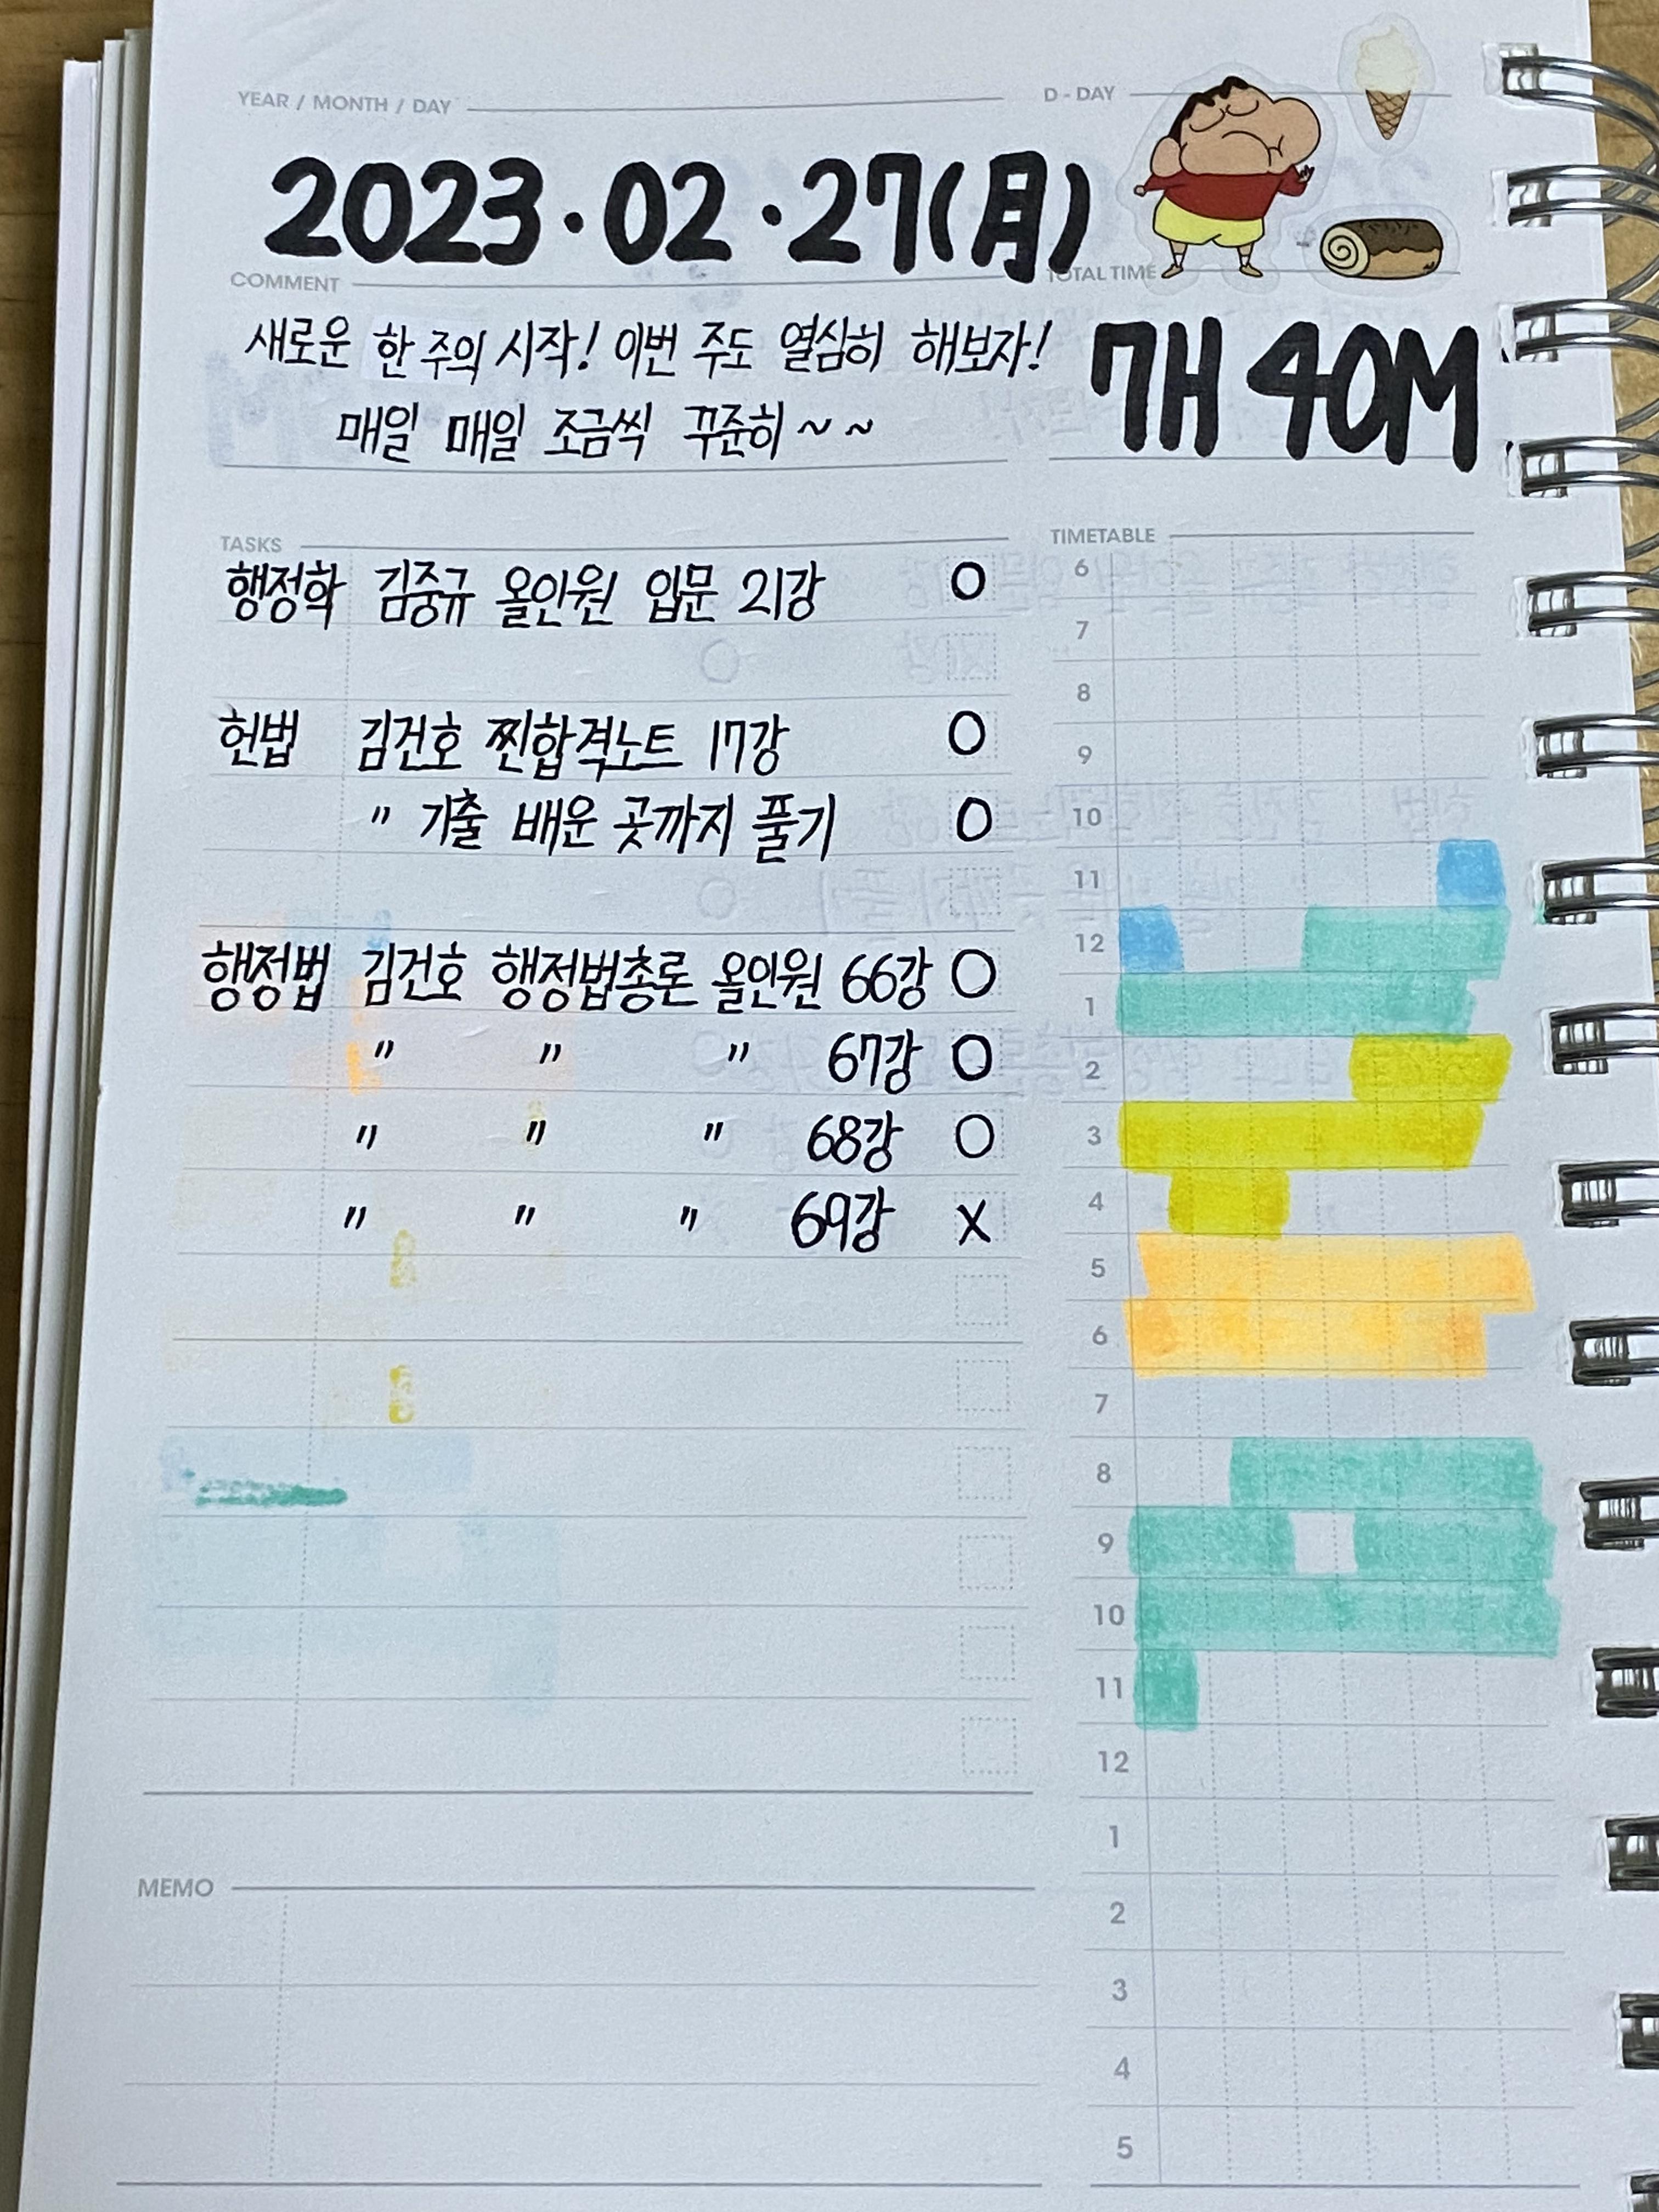 YEAR / MONTH / DAY
D - DAY
2023.02.27(月)
COMMENT
TOTAL TIME
새로운 한 주의 시작! 이번 주도 열심히 해보자!
매일 매일 조금씩 꾸준히~~
7H 40M
TASKS
행정학 김중규 올인원 입문 21강 O
헌법 김건호 찐합격노트 17강 O
" 기출 배운 곳까지 풀기 O
행정법 김건호 행정법총론 올인원 66강 O
" " " 67강 O
" " " 68강 O
" " " 69강 X
MEMO
TIMETABLE
6
7
8
9
10
11
12
1
2
3
4
5
6
7
8
9
10
11
12
1
2
3
4
5